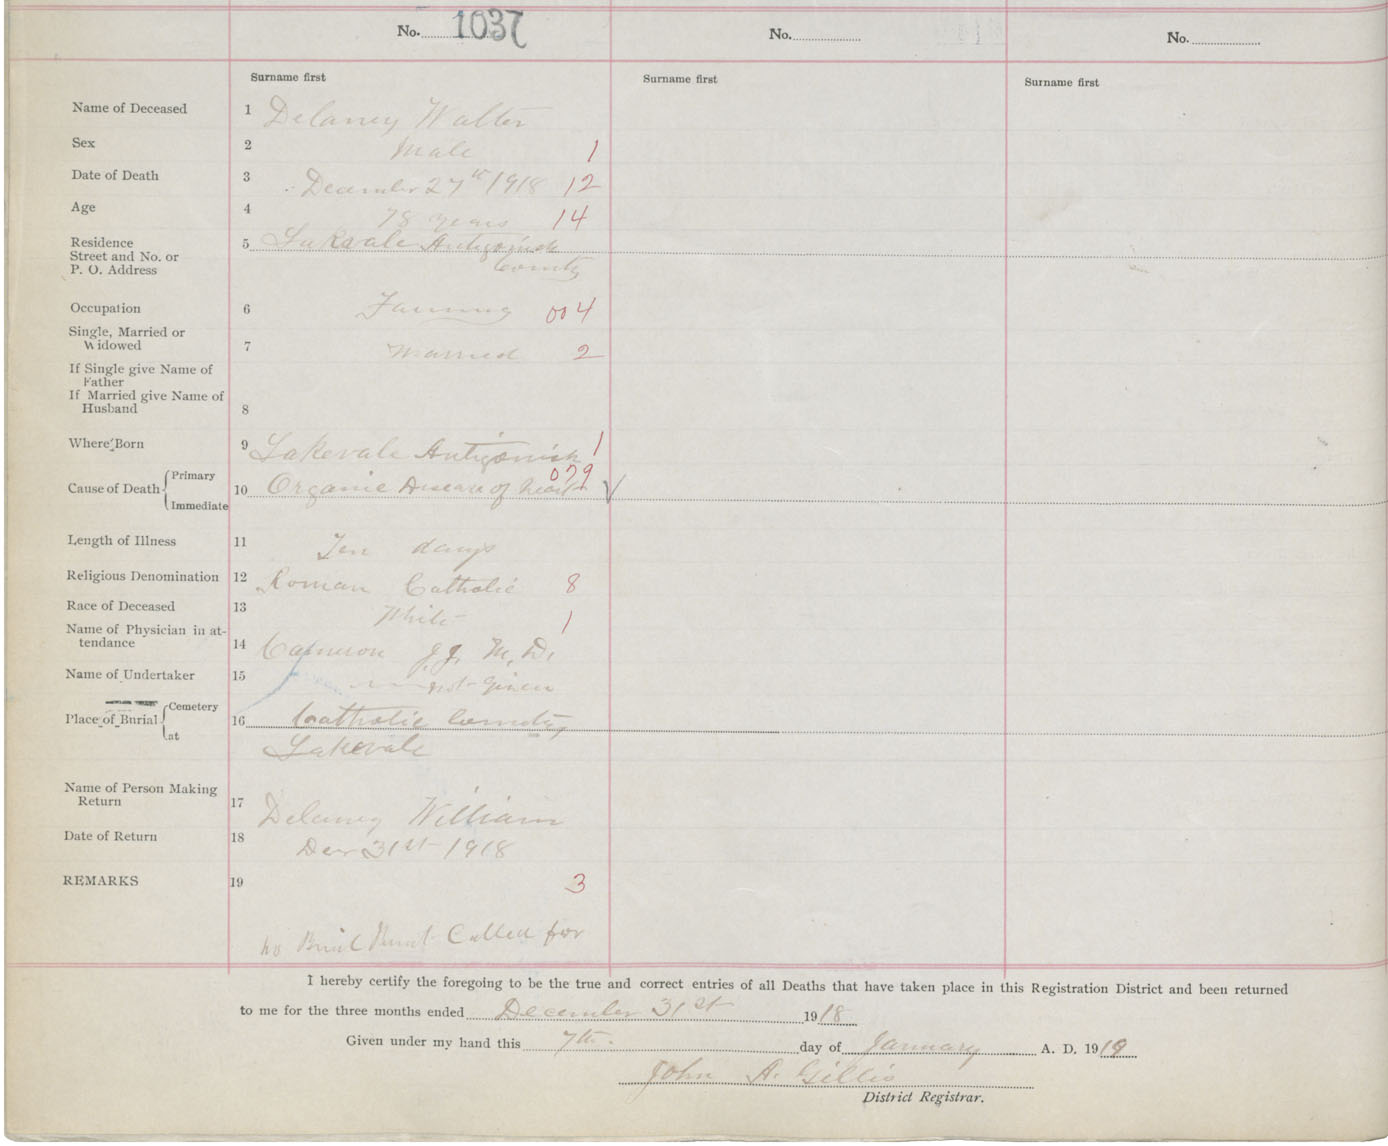 No. 1037 No. No.
Surname first Surname first Surname first
Name of Deceased 1 Delaney Walter
Sex 2 Male 1
Date of Death 3 December 27th 1918 12
Age 4 78 years 14
Residence
Street and No. or
P. O. Address 5 Lakevale Antigonish
County
Occupation 6 Farming 004
Single, Married or
Widowed 7 Married 2
If Single give Name of
Father
If Married give Name of
Husband 8
Where Born 9 Lakevale Antigonish 1
079
Cause of Death Primary
Immediate 10 Organic Disease of heart
Length of Illness 11 Ten days
Religious Denomination 12 Roman Catholic 8
Race of Deceased 13 White 1
Name of Physician in at-
tendance 14 Cameron J.J. M.D.
Name of Undertaker 15 not given
Place of Burial Cemetery
at 16 Catholic Cemetery
Lakevale
Name of Person Making
Return 17 Delaney William
Date of Return 18 Dec 31st 1918
REMARKS 19 3
no Called for
I hereby certify the foregoing to be the true and correct entries of all Deaths that have taken place in this Registration District and been returned
to me for the three months ended December 31st 1918
Given under my hand this 7th. day of January A. D. 1919
John A. Gillis
District Registrar.